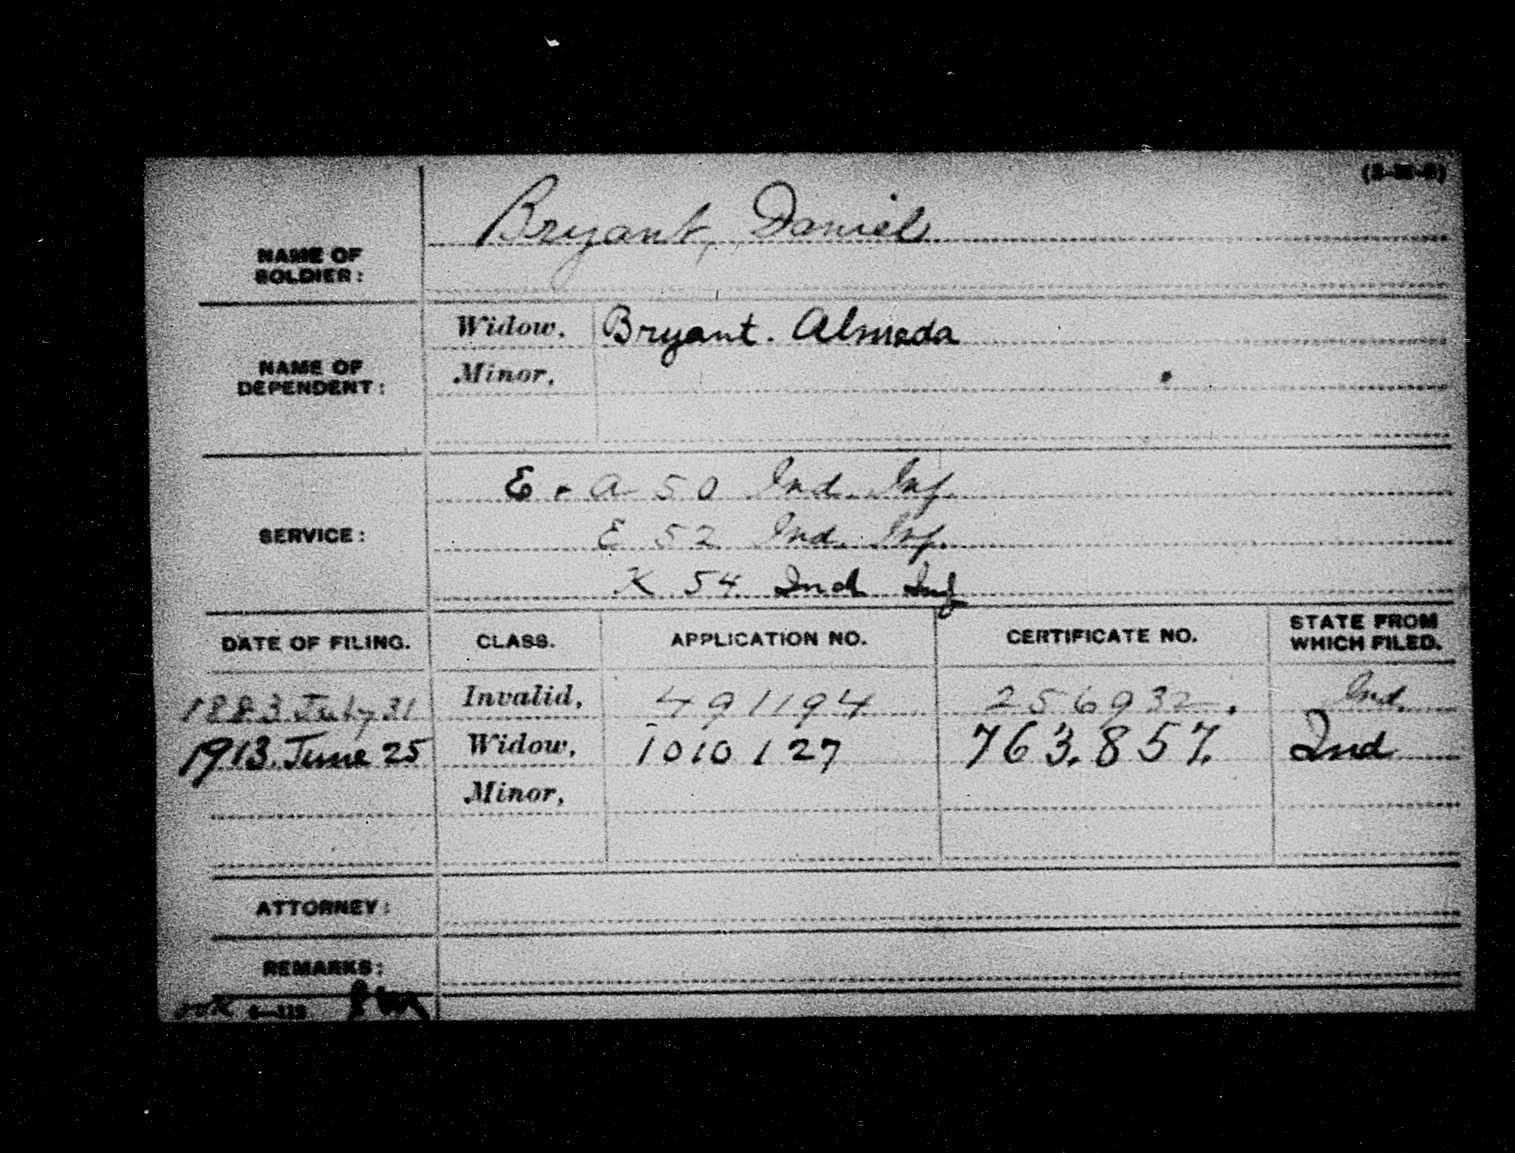 Bryant, Daniel
NAME OF
SOLDIER:
Widow, Bryant. Almeda
Minor,
NAME OF
DEPENDENT:
E & A 50 Ind. Inf.
SERVICE: E 52 Ind. Inf.
K 54 Ind Inf
DATE OF FILING. CLASS. APPLICATION NO. CERTIFICATE NO. STATE FROM
WHICH FILED.
1883 July 31 Invalid, 491194 256932. Ind.
1913. June 25 Widow, 1010127 763.857. Ind
Minor,
ATTORNEY:
REMARKS: